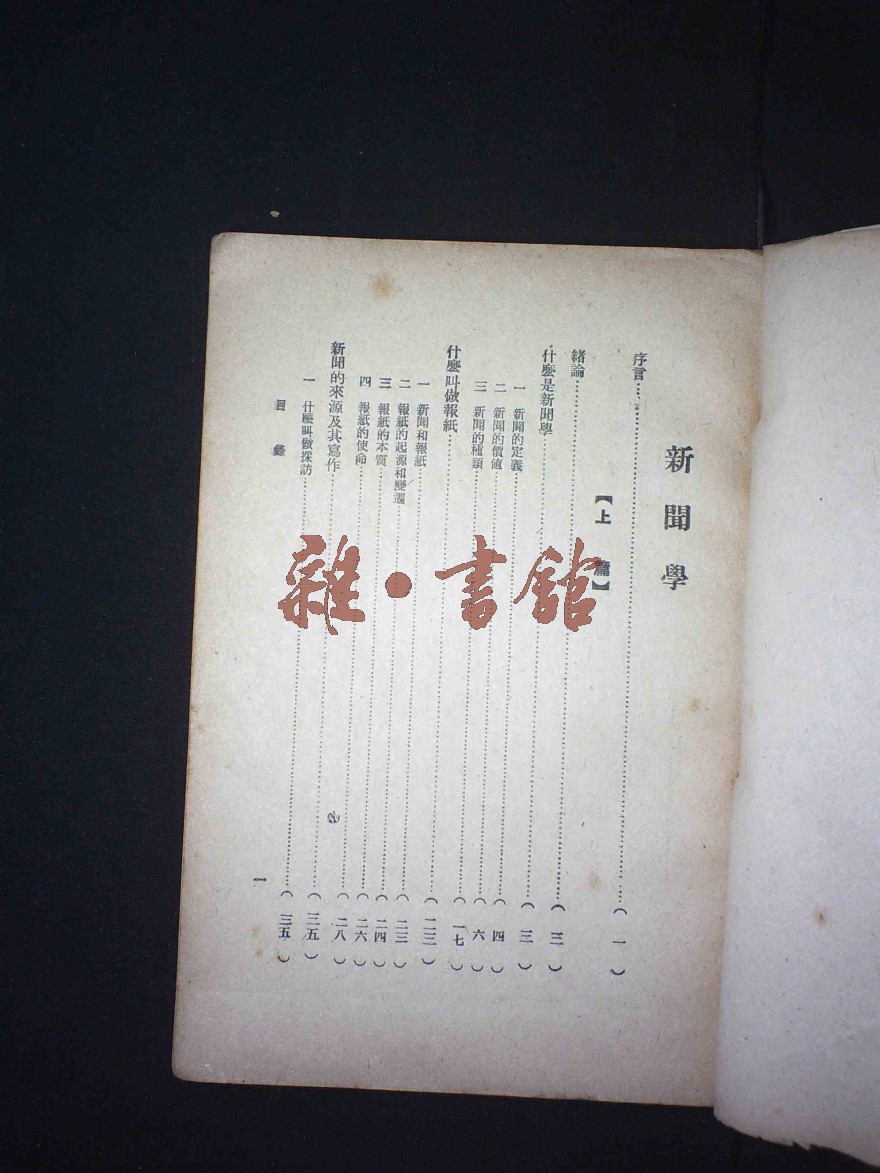 新聞學
序言……(一)
【上篇】
緒論……(三)
什麼是新聞學……(三)
一 新聞的定義……(四)
二 新聞的價值……(六)
三 新聞的種類……(一七)
什麼叫做報紙……(二三)
一 新聞和報紙……(二三)
二 報紙的起源和變遷……(二四)
三 報紙的本質……(二六)
四 報紙的使命……(二八)
新聞的來源及其寫作……(三五)
一 什麼叫做探訪……(三五)
目錄 一
雜·書館